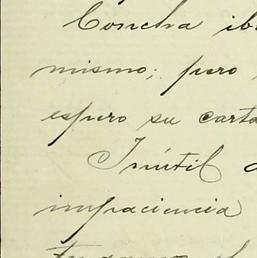 Concha ib
mismo; pero
espero su carta
Inútil
impaciencia